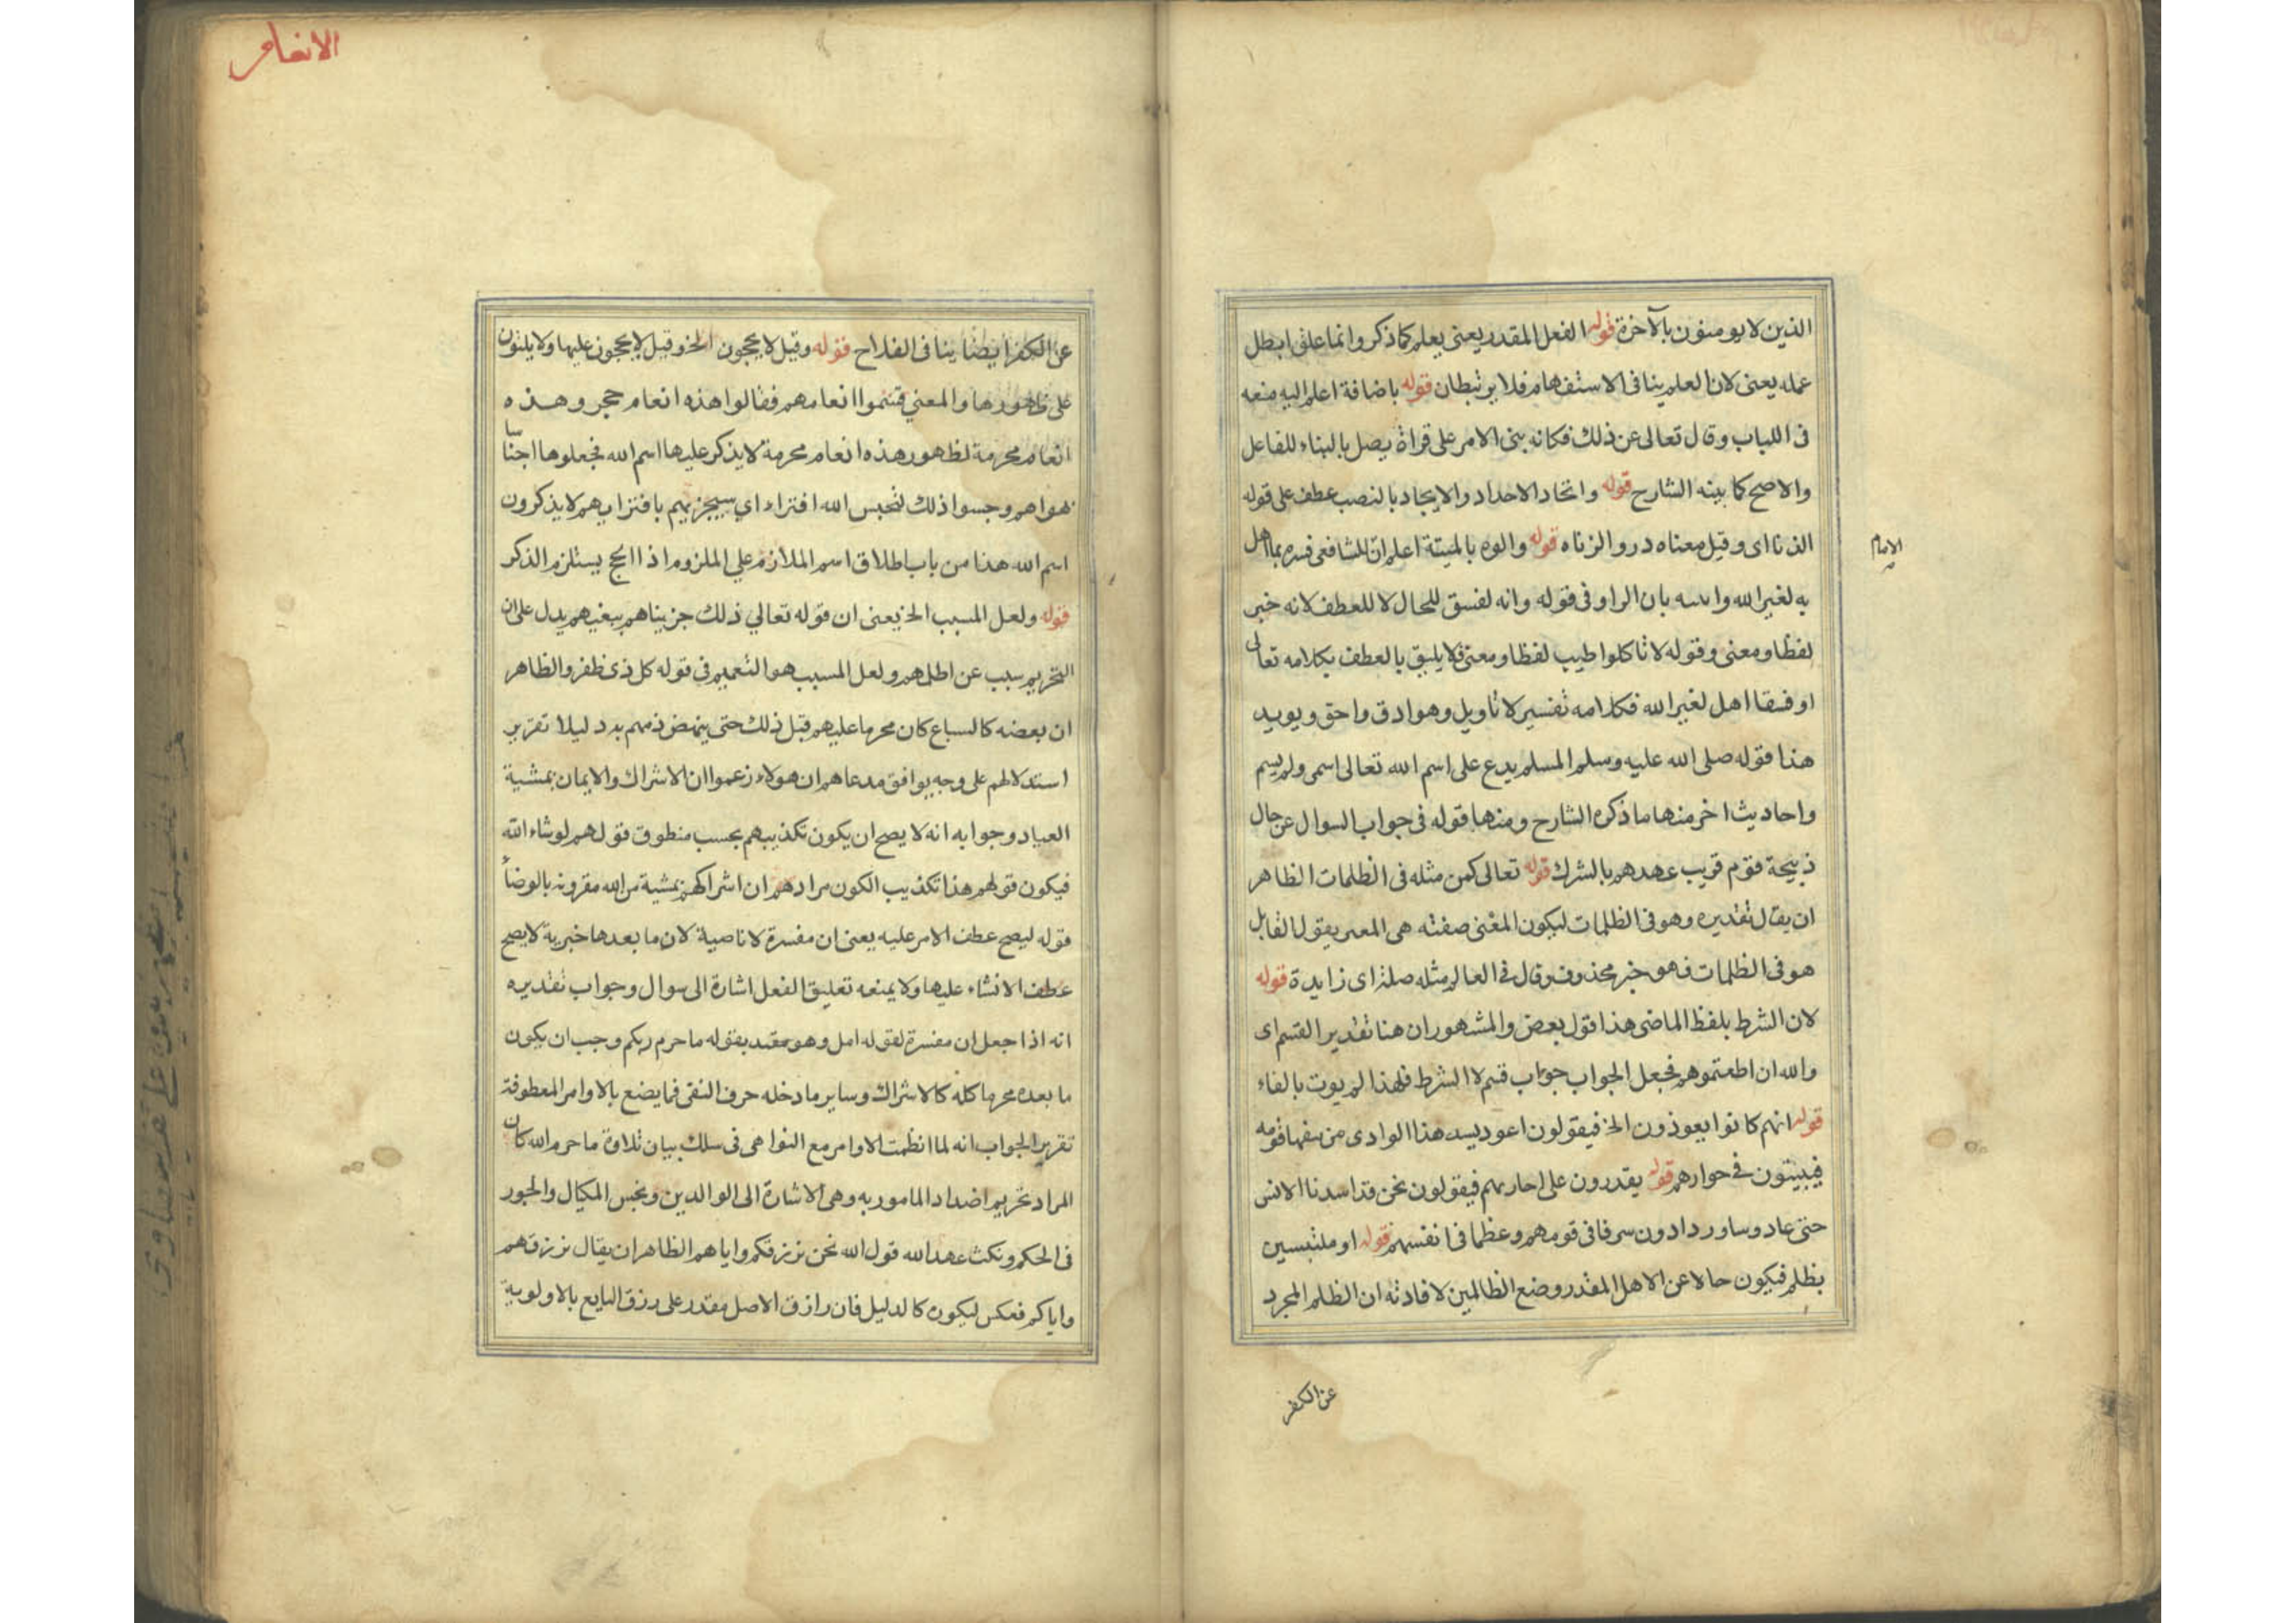 الذين لا يومنون بالآخرة قوله الفعل المقدر يعنى يعلم كما ذكر وانما على ابطل
عمله يعنى لان العلم ينافى الاستفهام فلا يرتبطان قوله باضافة اعلم اليه منعه
فى اللباب وقال تعالى عن ذلك فكانه بنى الامر على قراة يصل بالبناء للفاعل
والاصح كما بينه الشارح قوله واتخاد الاخداد والايجاد بالنصب عطف على قوله
الذنااى وقيل معناه دروا الزناه قوله والوه بالميتة اعلم ان الشافعى فسره بما اهل
الامام
به لغير الله بان الراو فى قوله وانه لفسق للحال لا للعطف لانه خبر
لفظا ومعنى وقوله لا تاكلوا طيب لفظا ومعنى فلا يليق بالعطف بكلامه تعالى
او فسقا اهل لغير الله فكلامه تفسير لا تاويل وهو ادق واحق ويويد
هذا قوله صلى الله عليه وسلم المسلم يدع على اسم الله تعالى اسمى ولم يسم
واحاديث اخر منها ما ذكره الشارح ومنها قوله فى جواب السوال عن حال
ذبيحة قوم قريب عهدهم بالشرك قوله تعالى كمن مثله فى الظلمات الظاهر
ان يقال تقديره وهو فى الظلمات ليكون المعنى صفته هى المعبر بقول القابل
هو فى الظلمات فهو خبر محذوف وقال فى العالم مثله صلة اى زايدة قوله
لان الشرط بلفظ الماضى هذا قول بعض والمشهور ان هنا تقدير القسم اى
والله ان اطعتموهم فجعل الجواب جواب قسم لا الشرط فلهذا لم يوت بالفاء
قوله انهم كانوا يعوذون الخ فيقولون اعوذ بسيد هذا الوادى من سفها قومه
فيبيتون فى جوارهم قوله يقدرون على اجارتهم فيقولون نحن قد اسدنا الانس
حتى عاد وساور دادون سرفا فى قومهم وعظما فى انفسهم قوله او ملتبسين
بظلم فيكون حالا عن الاهل المقدر وضع الظالمين لافادته ان الظلم المجرد
عن الكفر
الانعام
عن الكفر ايضا ينافى الفلاح قوله وقيل لا يحجون الخ وقيل لا يحجون عليها ولا يلبون
على ظهورها والمعنى قسموا انعامهم فقالوا هذه انعام حجر وهذه
انعام محرمة لظهور هذه انعام محرمة لا يذكر عليها اسم الله فجعلوها اجناسا
بهواهم وجسوا ذلك لتحبس الله افتراء اي سيجزيهم بافترايهم لا يذكرون
اسم الله هنا من باب اطلاق اسم الملازم علي الملزوم اذ االحج يستلزم الذكر
قوله ولعل المسبب الخ يعنى ان قوله تعالي ذلك جزيناهم ببغيهم يدل على ان
التحريم سبب عن اطلمهم ولعل المسبب هو التعميم فى قوله كل ذى ظفر والظاهر
ان بعضه كالسباع كان محرما عليهم قبل ذلك حتى ينهض ذمهم به دليلا تقرير
استدلالهم على وجه يوافق مدعاهم ان هولاء زعموا ان الاشراك والايمان بمشية
العباد وجوابه انه لا يصح ان يكون تكذيبهم بحسب منطوق قولهم لو شاء الله
فيكون قولهم هذا تكذيب الكون مرادهم ان اشراكهم بمشية من الله مقرونه بالوضاً
قوله ليصح عطف الامر عليه يعنى ان مفسرة لا ناصبة لان ما بعدها خبرية لا يصح
عطف الانشاء عليها ولا يمنعه تعليق الفعل اشارة الى سوال وجواب تقديره
انه اذا جعل ان مفسرة لقوله امل وهو مقيد بقوله ما حرم ربكم وجب ان يكون
ما بعده محرما كله كالاشراك وساير ما دخله حرف النفى فما يضع بالاوامر المعطوفة
تقرير الجواب انه لما انظمت الاوامر مع النواهى فى سلك بيان تلاوة ما حرم الله كان
المراد تحريم اضداد المامور به وهى الاشارة الى الوالدين وبخس المكيال والجور
فى الحكم ونكث عهد الله قول الله نحن نرزقكم واياهم الظاهر ان يقال نرزقهم
واياكم فعكس ليكون كالدليل فان رازق الاصل مقدر على رزق التابع بالاولوية